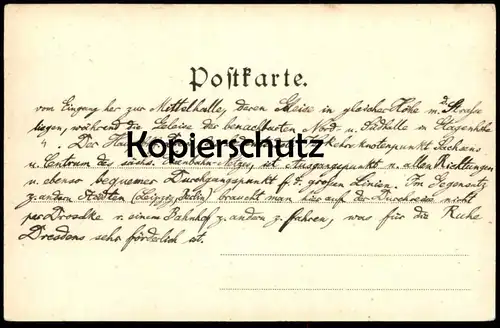 Postkarte.
vom Eingang her zur Mittelhalle, deren Gleise in gleicher Höhe m. d. Straße
liegen, während die Geleise der benachbarten Nord- u. Südhalle in Etagenhöhe
". Der
Kopierschutz
Verkehrsknotenpunkt Sachsens
u. Centrum des sächs. Eisenbahn-Netzes ist Ausgangspunkt n. allen Richtungen
u. ebenso bequemer Durchgangspunkt f. d. großen Linien. Im Gegensatz
z. andern Städten (Leipzig, Berlin) braucht man hier auf der Durchreise nicht
per Droschke v. einem Bahnhof z. andern z. fahren, was für die Ruhe
Dresdens sehr förderlich ist.